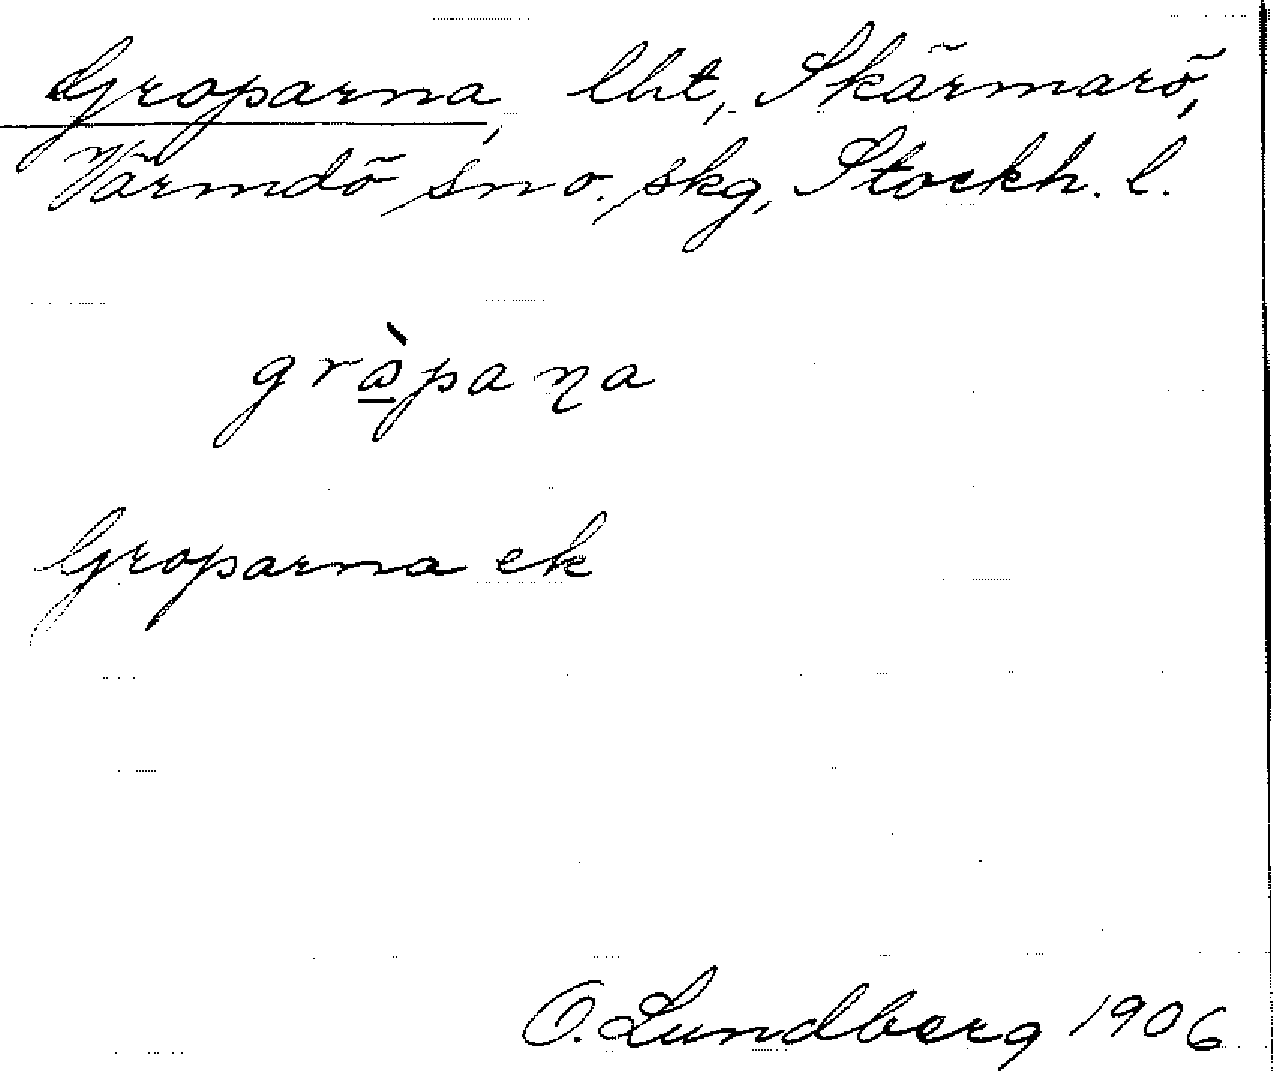 Groparna, lht, Skärmarö,
Värmdö sn o. skg, Stockh. l.
grằpaɳa
Groparna ek
O. Lundberg 1906